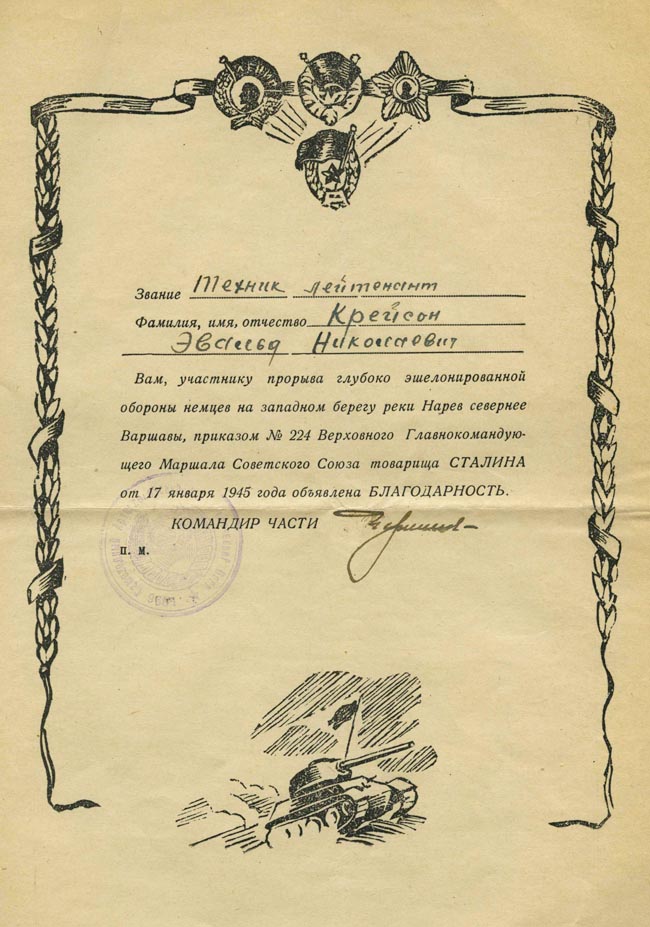 Звание Техник лейтенант
Фамилия, имя, отчество Крейсон
Эвальд Николаевич
Вам, участнику прорыва глубоко эшелонированной
обороны немцев на западном берегу реки Нарев севернее
Варшавы, приказом № 224 Верховного Главнокомандую-
щего Маршала Советского Союза товарища СТАЛИНА
от 17 января 1945 года объявлена БЛАГОДАРНОСТЬ.
КОМАНДИР ЧАСТИ
П. М.